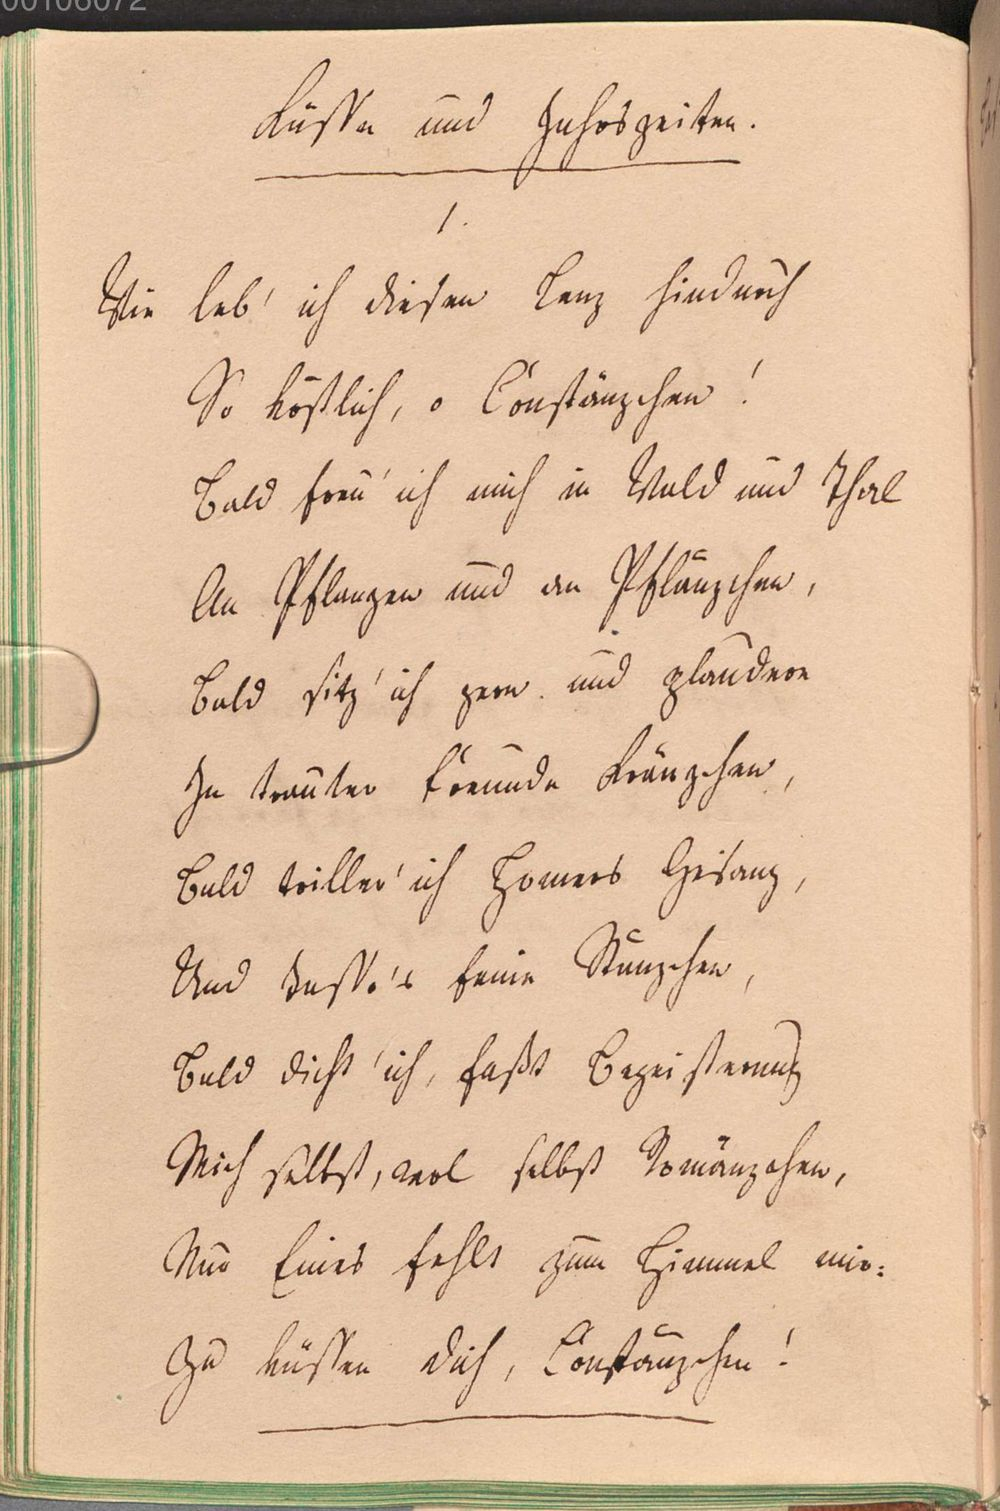 00106072
Küsse und Jahrszeiten.
1.
Wie leb' ich diesen Lenz hindurch
So köstlich, o Constänzchen!
Bald freu' ich mich in Wald und Thal
An Pflanzen und an Pflänzchen,
Bald sitz' ich gern und plaudere
In trauter Freunde Kränzchen,
Bald triller' ich Homers Gesang,
Und Tasso's feine Stänzchen,
Bald dicht' ich, faßt Begeisterung
Mich selbst, wol selbst Romänzchen,
Nur Eines fehlt zum Himmel mir:
Zu küssen dich, Constänzchen!